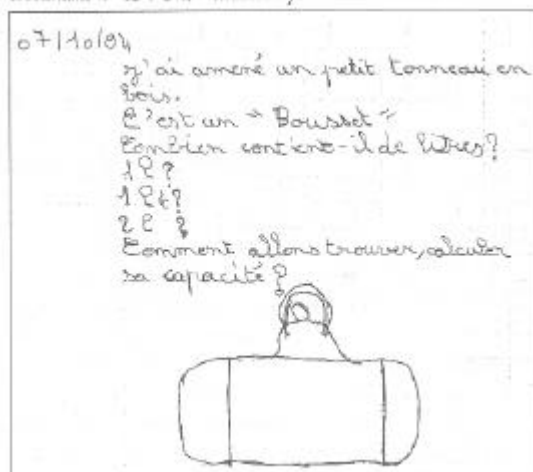 07/10/94
J'ai amené un petit tonneau en
bois.
C'est un "Bousset"
Combien contient-il de litres?
1 L ?
1 L ½?
2 L ?
Comment allons trouver, calculer
sa capacité ?